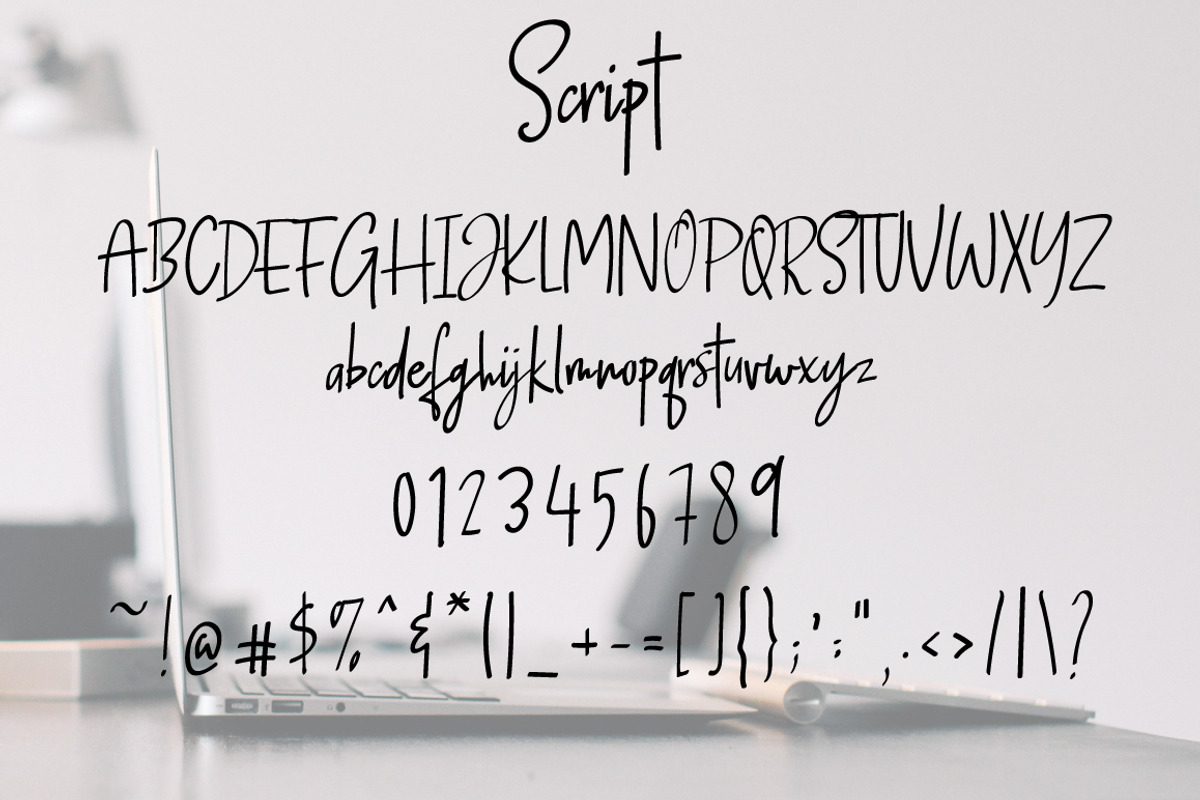 Script
ABCDEFGHIJKLMNOPQRSTUVWXYZ
abcdefghijklmnopqrstuvwxyz
0123456789
~!@#$%^&*()_+-=[]{};':",.<>/|\?